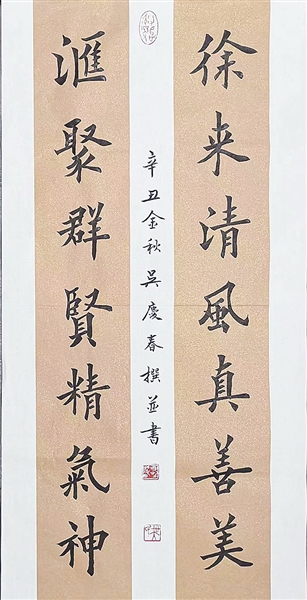 徐来清風真善美
滙聚群賢精氣神
辛丑金秋吳慶春撰並書